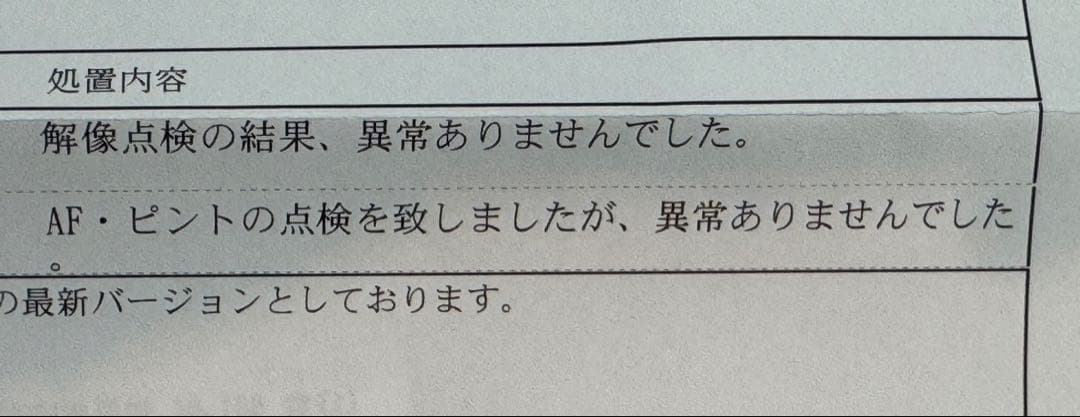 処置内容
解像点検の結果、異常ありませんでした。
AF・ピントの点検を致しましたが、異常ありませんでした
。
の最新バージョンとしております。